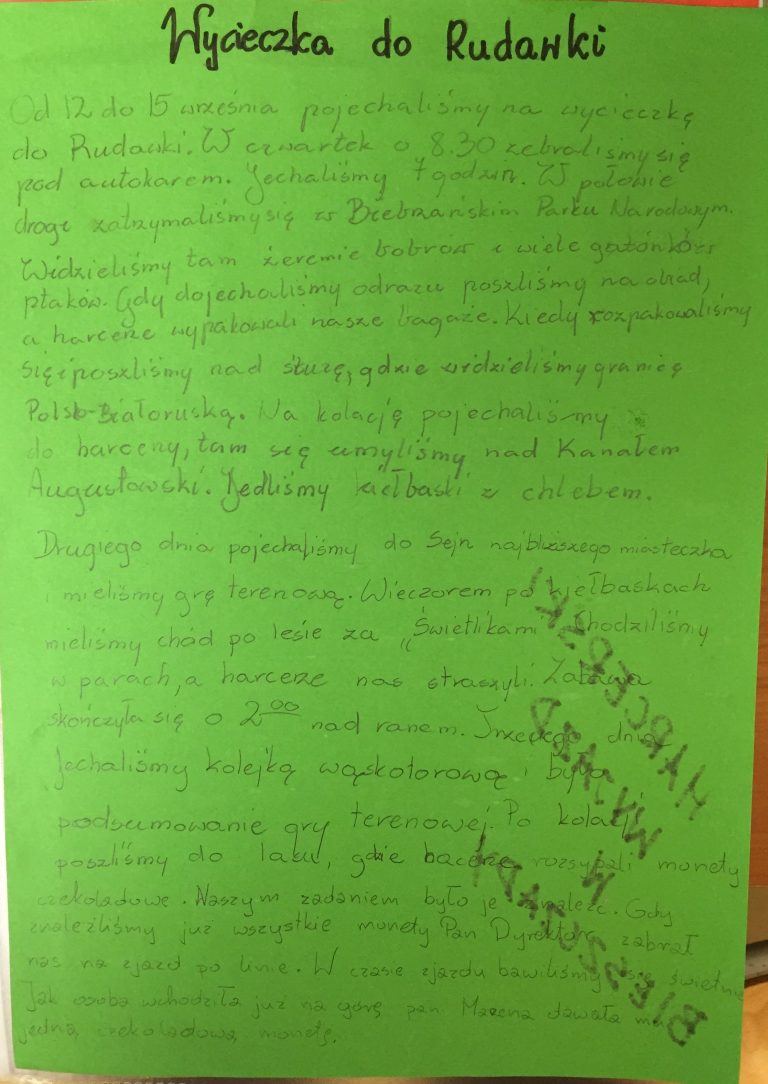 Wycieczka do Rudawki
Od 12 do 15 września pojechaliśmy na wycieczkę
do Rudawki. W czwartek o 8.30 zebraliśmy się
pod autokarem. Jechaliśmy 7 godzin. W połowie
drogi zatrzymaliśmy się w Biebrzańskim Parku Narodowym.
Widzieliśmy tam żeremie bobrów i wiele gatónków
ptaków. Gdy dojechaliśmy odrazu poszliśmy na obiad,
a harcerze wypakowali nasze bagaże. Kiedy rozpakowaliśmy
się poszliśmy nad śluzę, gdzie widzieliśmy granicę
Polsko-Białoruską. Na kolację pojechaliśmy
do harceny, tam się umyliśmy nad Kanałem
Augustowski. Jedliśmy kiełbaski z chlebem.
Drugiego dnia pojechaliśmy do Sejn najbliższego miasteczka
i mieliśmy grę terenową. Wieczorem po kiełbaskach
mieliśmy chód po lesie za „Świetlikami" Chodziliśmy
w parach, a harcerze nas straszyli. Zabawa
skończyła się o 2⁰⁰ nad ranem. Trzeciego dnia
Jechaliśmy kolejką wąskotorową i było
podsumowanie gry terenowej. Po kolacji
poszliśmy do lasu, gdzie rozsypali monety
czekoladowe. Naszym zadaniem było je znaleźć. Gdy
znaleźliśmy już wszystkie monety Pan Dyrektor zabrał
nas na zjazd po linie. W czasie zjazdu bawiliśmy się świetnie
Jak osoba wchodziła już na górę pan Marcena dawała mu
jedną czekoladową monetę.